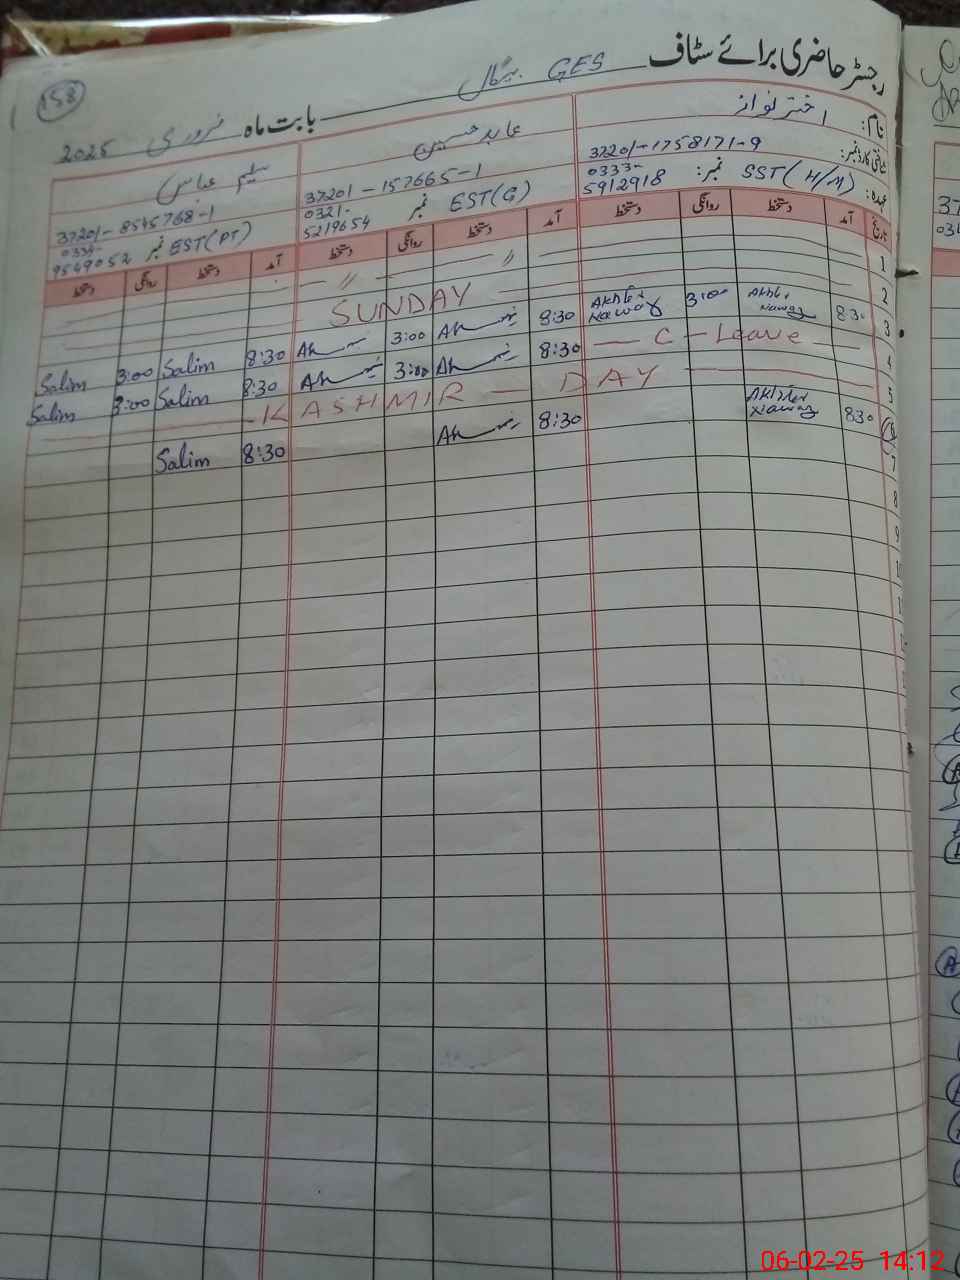 158
رجسٹر حاضری برائے سٹاف GES بیگال
بابت ماہ فروری 2025
نام: اختر نواز
عابد حسین
سلیم عباس
شناختی کارڈ نمبر: 37201-1758171-9
37201-157665-1
37201-8545768-1
عہدہ: SST(H/M) نمبر: 0333-5912918
EST(G) نمبر 0321-5219654
EST(PT) نمبر 0334-9549052
تاریخ آمد دستخط روانگی دستخط آمد دستخط روانگی دستخط آمد دستخط روانگی دستخط
1 〃 〃
2 SUNDAY
3 830 Akhter Nawaz 3:00 Akhter Nawaz 8:30 3:00 8:30 Salim 3:00 Salim
4 C - Leave 8:30 3:00 8:30 Salim 3:00 Salim
5 KASHMIR DAY
6 830 Akhter Nawaz 8:30 8:30 Salim
7
8
9
06-02-25 14:12